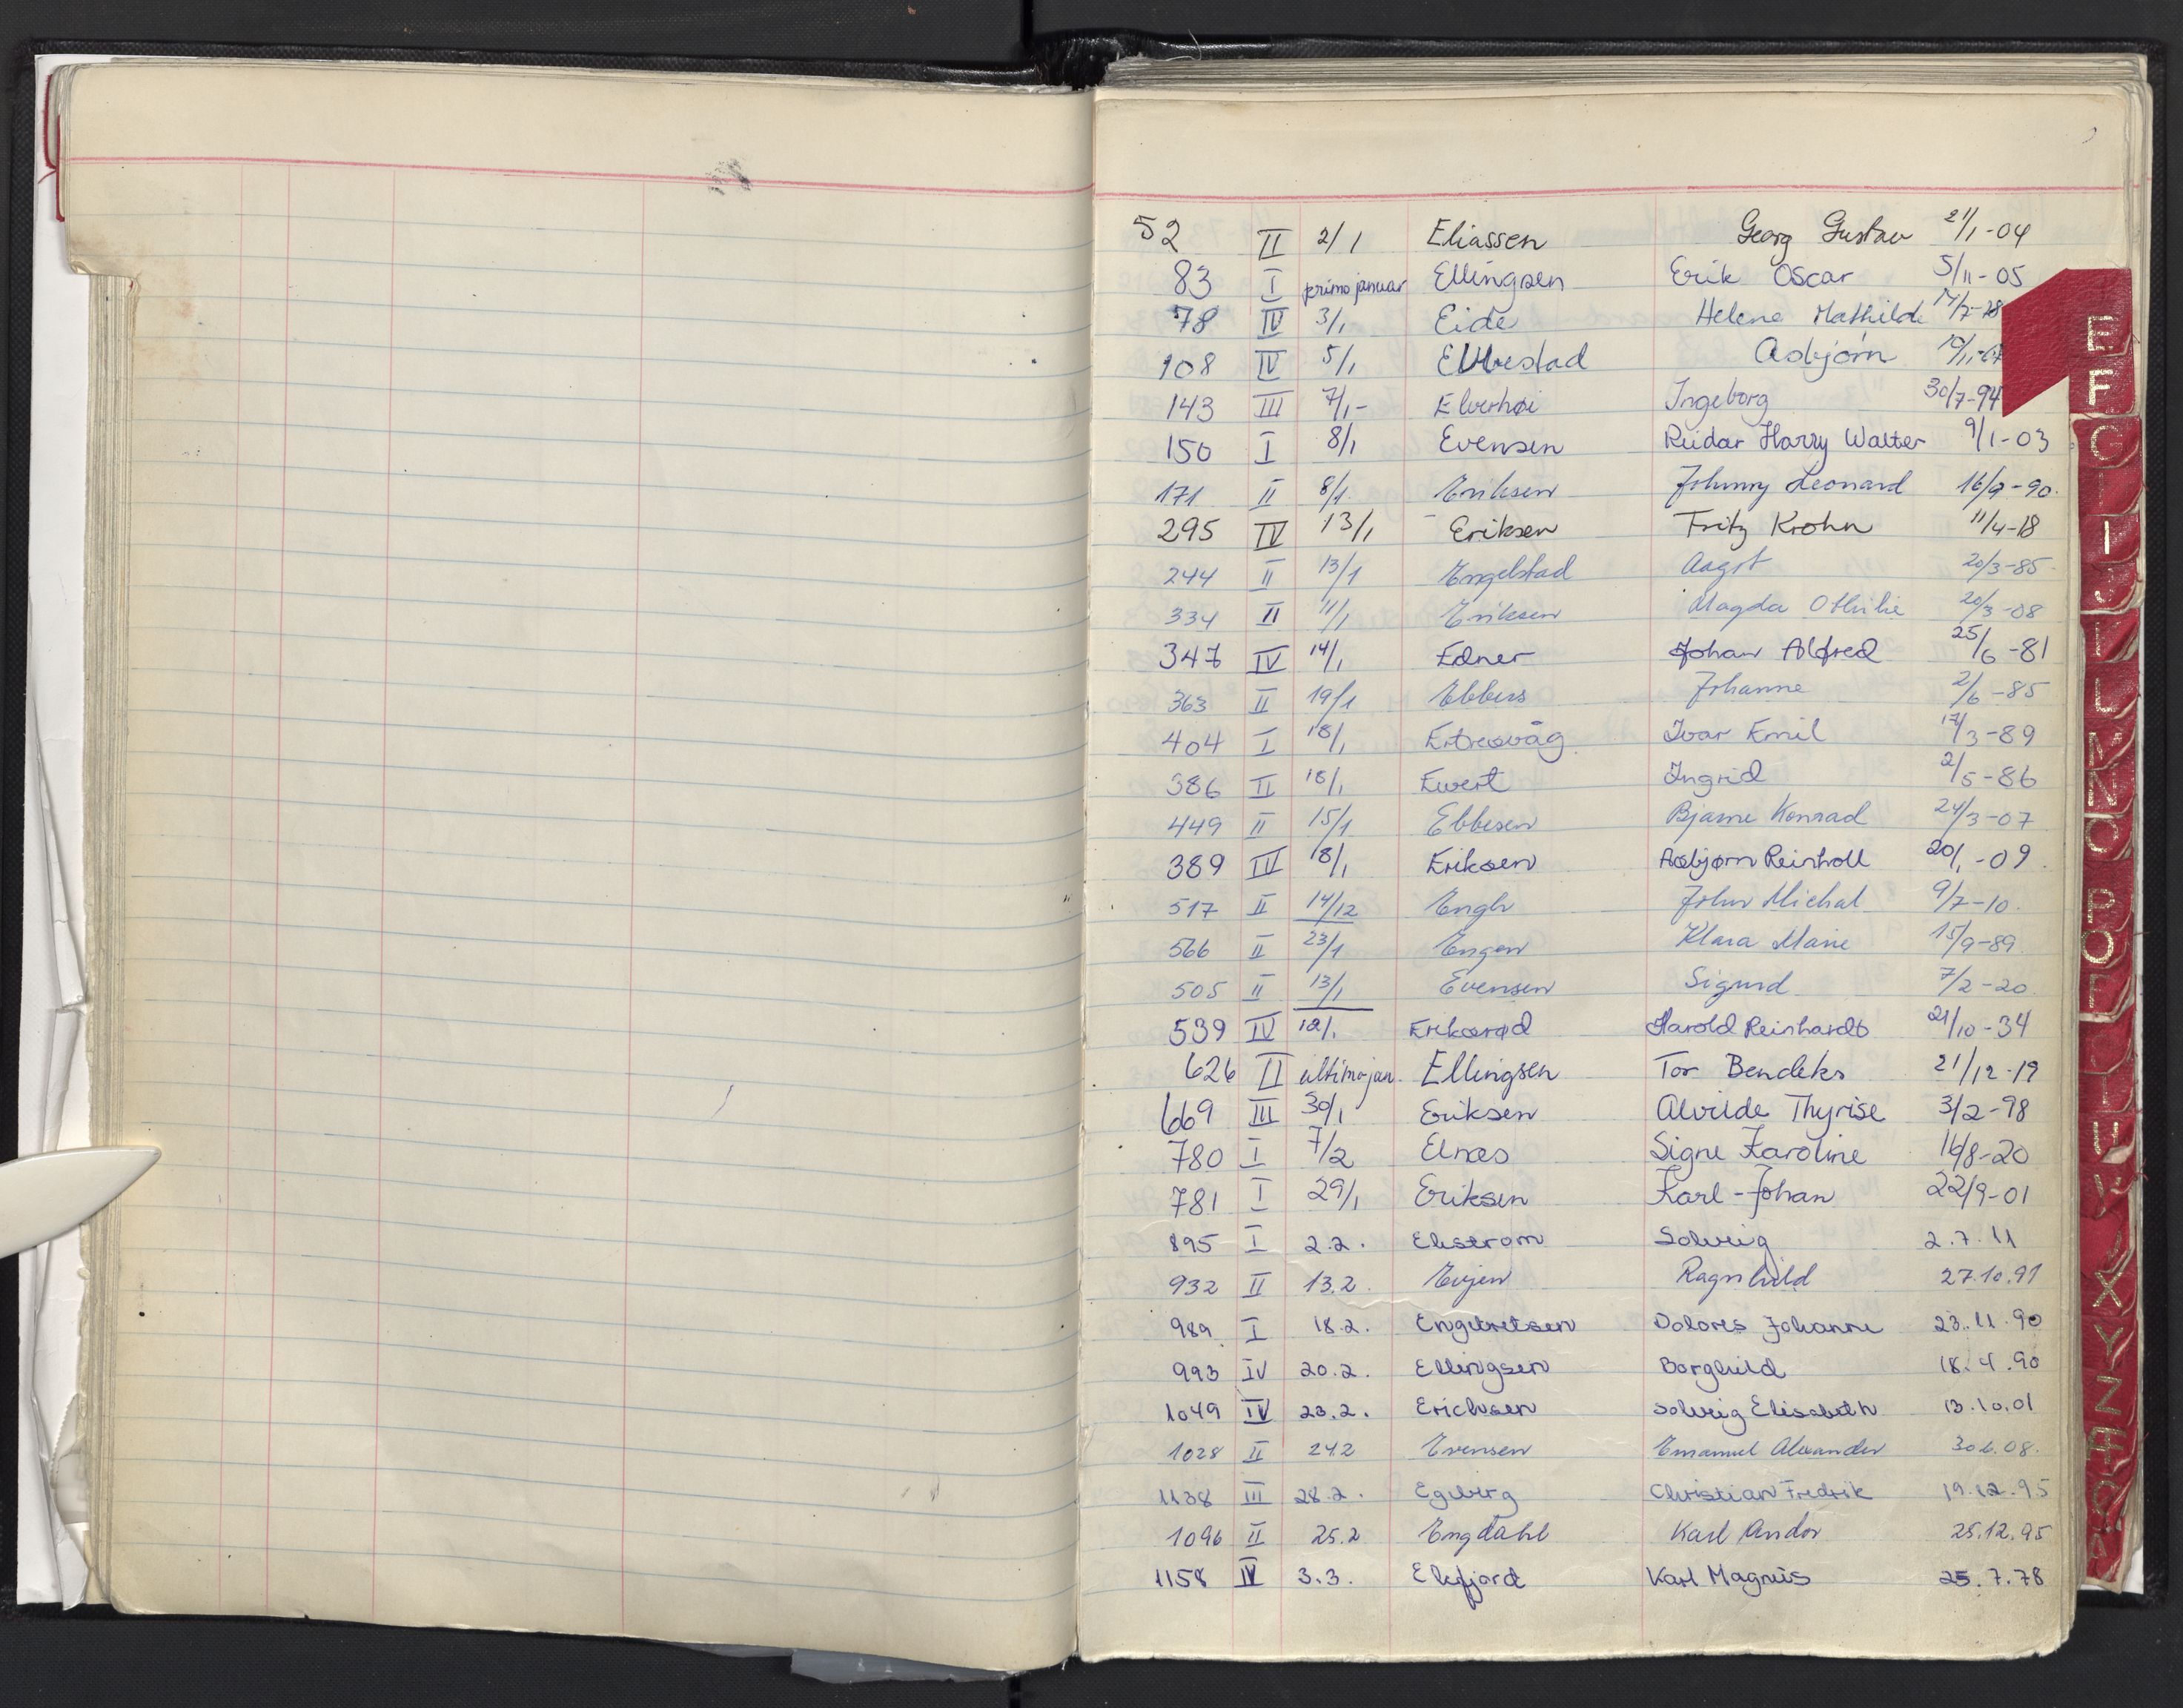 52 II 2/1 Eliassen Georg Gustav 21/1-04
83 I primo januar Ellingsen Erik Oscar 5/11-05
78 IV 3/1 Eide Helene Mathilde
108 IV 5/1 Asbjørn
143 III 7/1- Elverhøi Ingeborg 30/7-94
150 I 8/1 Evensen Reidar Harry Walter 9/1-03
171 II 8/1 Eriksen Johnny Leonard 16/9-90
295 IV 13/1 Eriksen Fritz Krohn 11/4-18
244 II 13/1 Engelstad Aagot 20/3-85
334 II 11/1 Eriksen Magda Othilie 20/3-08
347 IV 14/1 Edner Johan Alfred 25/6-81
363 II 19/1 Ebbers Johanne 2/6-85
404 I 18/1 Ertresvåg Ivar Emil 17/3-89
386 II 18/1 Ewert Ingrid 2/5-86
449 II 15/1 Ebbesen Bjarne Konrad 24/3-07
389 IV 18/1 Eriksen Asbjørn Reinholl 20/1-09
517 II 14/12 Engh John Michal 9/7-10
566 II 23/1 Engen Klara Marie 15/9-89
505 II 13/1 Evensen Sigurd 7/2-20
539 IV 12/1 Eriksrød Harold Reinhardt 21/10-34
626 II ultimo jan. Ellingsen Tor Bendiks 21/12-19
669 III 30/1 Eriksen Alvilde Thyrise 3/2-98
780 I 7/2 Elnæs Signe Karoline 16/8-20
781 I 29/1 Eriksen Karl-Johan 22/9-01
895 I 2.2. Ekstrøm Solveig 2.7.11
932 II 13.2. Evjen Ragnhild 27.10.91
989 I 18.2. Engebretsen Dolores Johanne 23.11.90
993 IV 20.2. Ellingsen Borghild 18.4.90
1049 IV 23.2. Erichsen Solveig Elisabeth 13.10.01
1028 II 24.2 Evensen Emanuel Alexander 30.6.08.
1138 III 28.2. Egeberg Christian Fredrik 19.12.95
1096 II 25.2 Engdahl Karl Andor 25.12.95
1158 IV 3.3. Ekfjord Karl Magnus 25.7.78
E
F
G
I
J
L
M
N
O
P
V
X
Y
Z
Æ
Ø